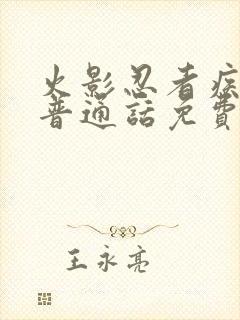 火影忍者疾
普通話免費
王永亮